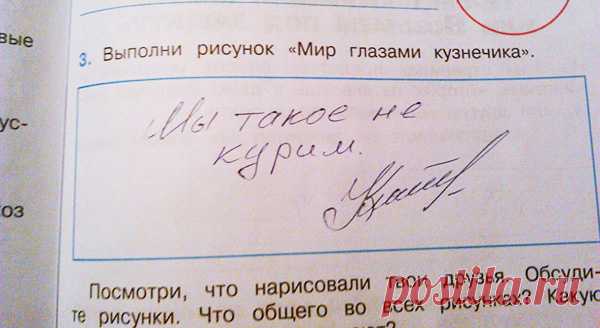 вые
3. Выполни рисунок «Мир глазами кузнечика».
ус-
Мы такое не
курим.
оз
Посмотри, что нарисовали твои друзья. Обсуди-
те рисунки. Что общего во всех рисунках? Какую
posti.ru